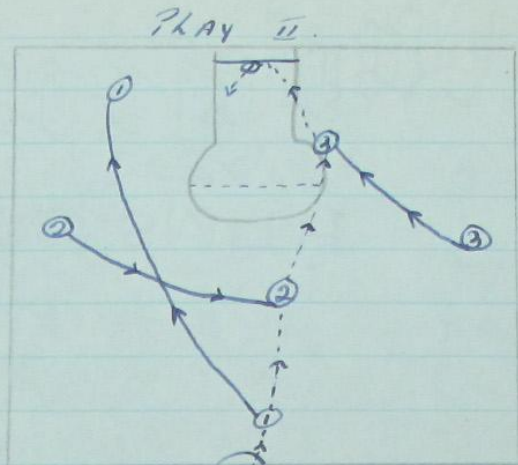 PLAY II.
1
3
2
3
2
1